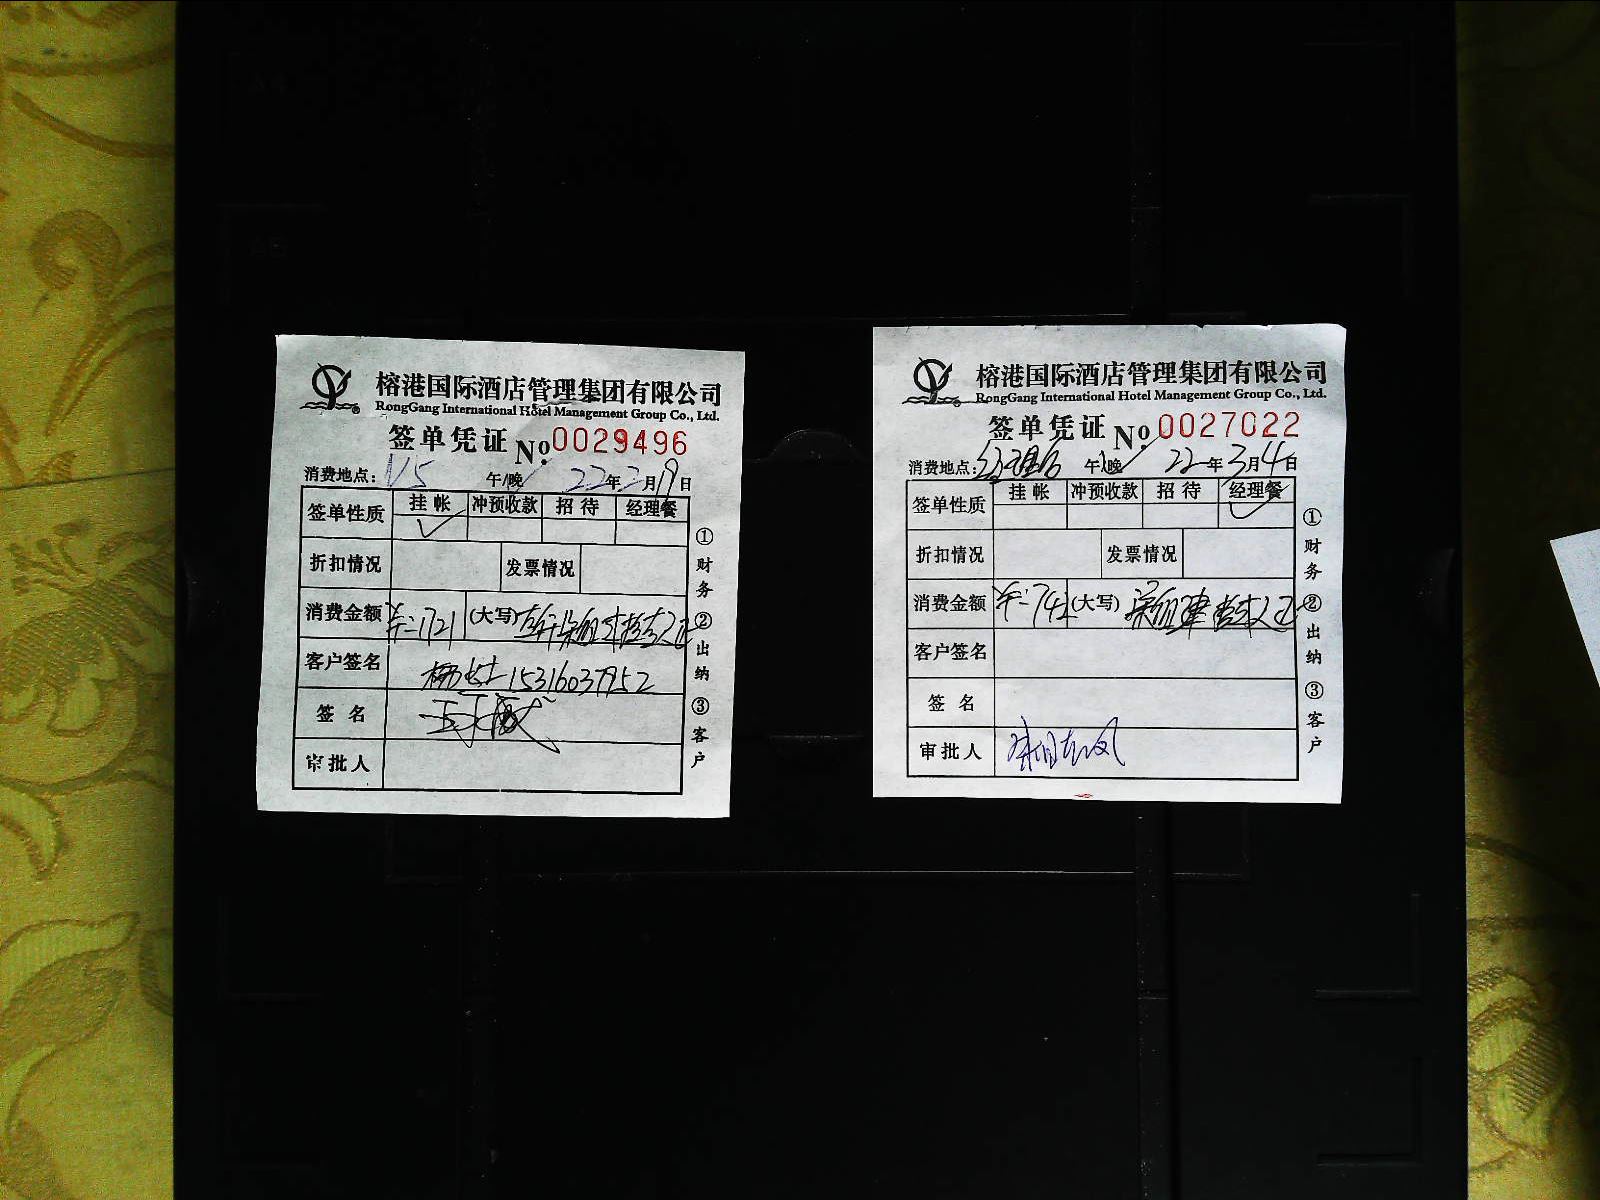 榕港国际酒店管理集团有限公司
RongGang International Hotel Management Group Co., Ltd.
签单凭证 No. 0029496
消费地点: V5 午/晚 22年3月19日
签单性质 挂帐 冲预收款 招待 经理餐
折扣情况 发票情况
消费金额 1721 (大写)
客户签名 15316037952
签名
审批人
①财务 ②出纳 ③客户
榕港国际酒店管理集团有限公司
RongGang International Hotel Management Group Co., Ltd.
签单凭证 No. 0027022
消费地点: 午/晚 22年3月4日
签单性质 挂帐 冲预收款 招待 经理餐
折扣情况 发票情况
消费金额 (大写)
客户签名
签名
审批人
①财务 ②出纳 ③客户